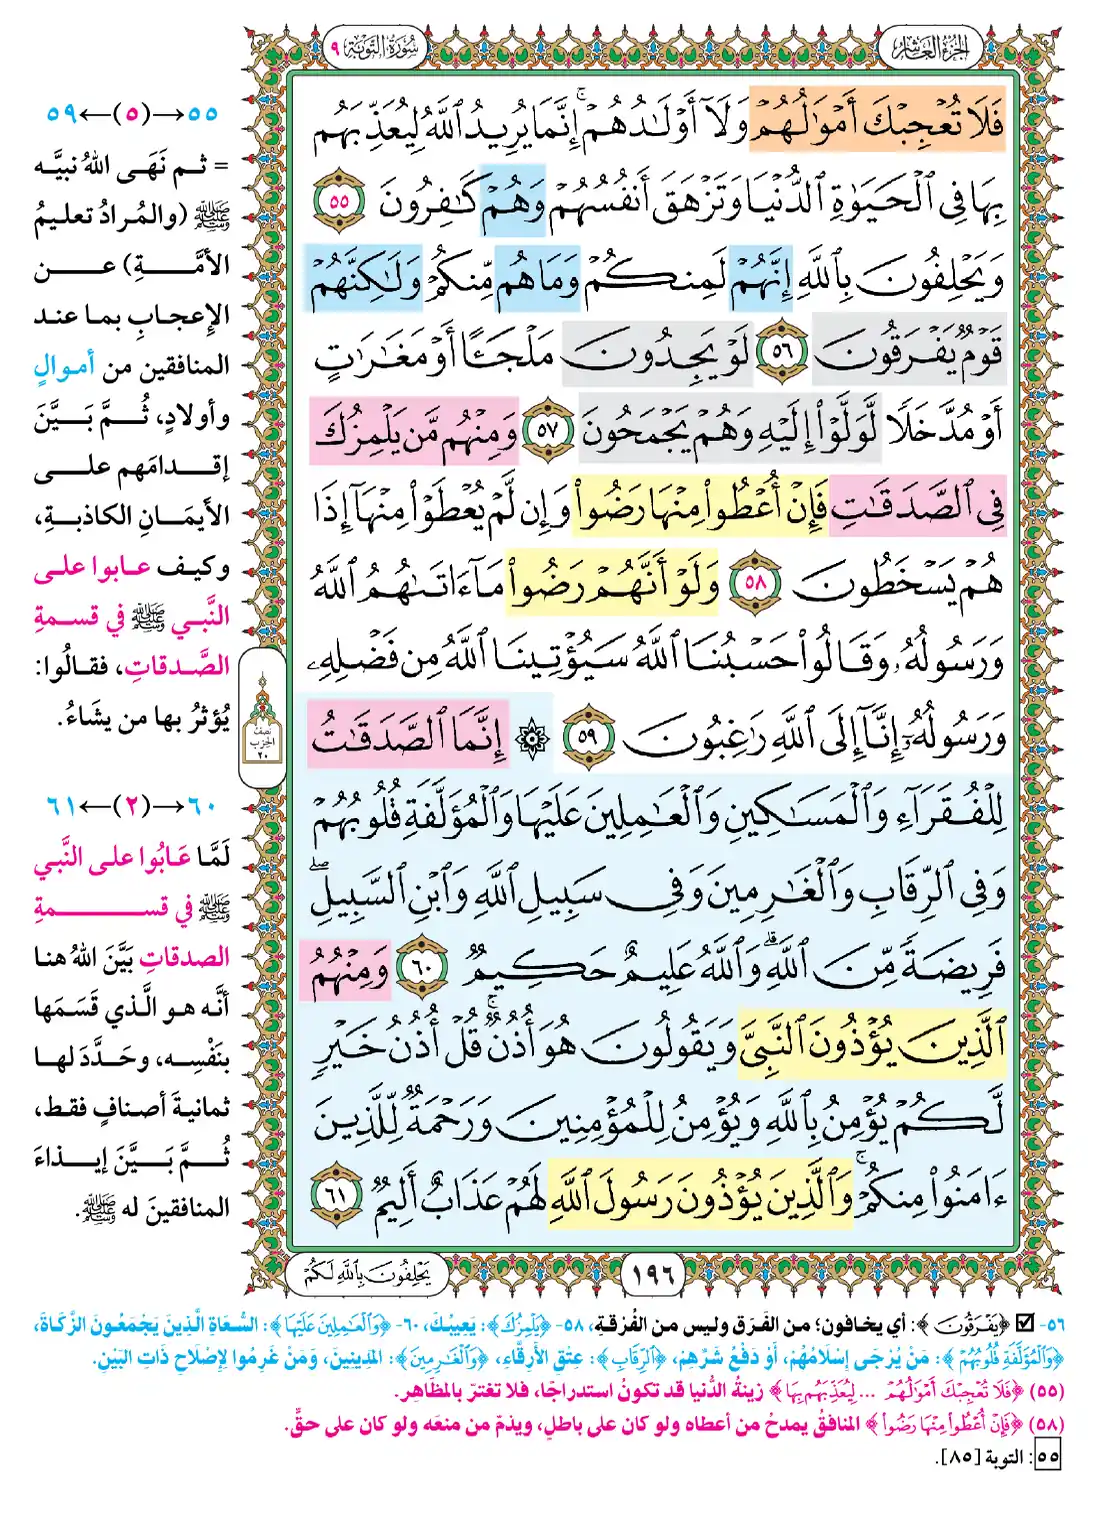 الجزء العاشر
سورة التوبة ٩
فَلَا تُعْجِبْكَ أَمْوَٰلُهُمْ وَلَآ أَوْلَٰدُهُمْ ۚ إِنَّمَا يُرِيدُ ٱللَّهُ لِيُعَذِّبَهُم
بِهَا فِى ٱلْحَيَوٰةِ ٱلدُّنْيَا وَتَزْهَقَ أَنفُسُهُمْ وَهُمْ كَٰفِرُونَ ٥٥
وَيَحْلِفُونَ بِٱللَّهِ إِنَّهُمْ لَمِنكُمْ وَمَا هُم مِّنكُمْ وَلَٰكِنَّهُمْ
قَوْمٌ يَفْرَقُونَ ٥٦ لَوْ يَجِدُونَ مَلْجَـًٔا أَوْ مَغَٰرَٰتٍ
أَوْ مُدَّخَلًا لَّوَلَّوْا۟ إِلَيْهِ وَهُمْ يَجْمَحُونَ ٥٧ وَمِنْهُم مَّن يَلْمِزُكَ
فِى ٱلصَّدَقَٰتِ فَإِنْ أُعْطُوا۟ مِنْهَا رَضُوا۟ وَإِن لَّمْ يُعْطَوْا۟ مِنْهَآ إِذَا
هُمْ يَسْخَطُونَ ٥٨ وَلَوْ أَنَّهُمْ رَضُوا۟ مَآ ءَاتَىٰهُمُ ٱللَّهُ
وَرَسُولُهُۥ وَقَالُوا۟ حَسْبُنَا ٱللَّهُ سَيُؤْتِينَا ٱللَّهُ مِن فَضْلِهِۦ
وَرَسُولُهُۥٓ إِنَّآ إِلَى ٱللَّهِ رَٰغِبُونَ ٥٩ ۞ إِنَّمَا ٱلصَّدَقَٰتُ
لِلْفُقَرَآءِ وَٱلْمَسَٰكِينِ وَٱلْعَٰمِلِينَ عَلَيْهَا وَٱلْمُؤَلَّفَةِ قُلُوبُهُمْ
وَفِى ٱلرِّقَابِ وَٱلْغَٰرِمِينَ وَفِى سَبِيلِ ٱللَّهِ وَٱبْنِ ٱلسَّبِيلِ ۖ
فَرِيضَةً مِّنَ ٱللَّهِ ۗ وَٱللَّهُ عَلِيمٌ حَكِيمٌ ٦٠ وَمِنْهُمُ
ٱلَّذِينَ يُؤْذُونَ ٱلنَّبِىَّ وَيَقُولُونَ هُوَ أُذُنٌ ۚ قُلْ أُذُنُ خَيْرٍ
لَّكُمْ يُؤْمِنُ بِٱللَّهِ وَيُؤْمِنُ لِلْمُؤْمِنِينَ وَرَحْمَةٌ لِّلَّذِينَ
ءَامَنُوا۟ مِنكُمْ ۚ وَٱلَّذِينَ يُؤْذُونَ رَسُولَ ٱللَّهِ لَهُمْ عَذَابٌ أَلِيمٌ ٦١
١٩٦
يَحْلِفُونَ بِٱللَّهِ لَكُمْ
نصف
الحزب
٢٠
٥٥→(٥)←٥٩
= ثم نَهَى اللهُ نبيَّه
ﷺ (والمُرادُ تعليمُ
الأمَّةِ) عن
الإعجابِ بما عند
المنافقين من أموالٍ
وأولادٍ، ثُمَّ بَيَّنَ
إقدامَهم على
الأيمَانِ الكاذبةِ،
وكيف عابوا على
النَّبي ﷺ في قسمةِ
الصَّدقاتِ، فقالُوا:
يُؤثرُ بها من يشَاءُ.
٦٠→(٢)←٦١
لَمَّا عَابُوا على النَّبي
ﷺ في قسمةِ
الصدقاتِ بَيَّنَ اللهُ هنا
أنَّه هو الَّذي قَسَمَها
بنَفْسِه، وحَدَّدَ لها
ثمانيةَ أصنافٍ فقط،
ثُمَّ بَيَّنَ إيذاءَ
المنافقينَ له ﷺ.
٥٦- ☑ ﴿يَفْرَقُونَ﴾: أي يخافون؛ من الفَرَق وليس من الفُرْقةِ، ٥٨- ﴿يَلْمِزُكَ﴾: يَعِيبُكَ، ٦٠- ﴿وَٱلْعَٰمِلِينَ عَلَيْهَا﴾: السُّعَاةِ الَّذِينَ يَجْمَعُونَ الزَّكَاةَ،
﴿وَٱلْمُؤَلَّفَةِ قُلُوبُهُمْ﴾: مَنْ يُرْجَى إِسْلَامُهُمْ، أَوْ دَفْعُ شَرِّهِمْ، ﴿ٱلرِّقَابِ﴾: عِتْقِ الأَرِقَّاءِ، ﴿وَٱلْغَٰرِمِينَ﴾: المَدِينِينَ، وَمَنْ غَرِمُوا لِإِصْلَاحِ ذَاتِ البَيْنِ.
(٥٥) ﴿فَلَا تُعْجِبْكَ أَمْوَٰلُهُمْ ... لِيُعَذِّبَهُم بِهَا﴾ زينةُ الدُّنيا قد تكونُ استدراجًا، فلا تغترّ بالمظاهِرِ.
(٥٨) ﴿فَإِنْ أُعْطُوا۟ مِنْهَا رَضُوا۟﴾ المنافقُ يمدحُ من أعطاه ولو كان على باطلٍ، ويذمّ من منعَه ولو كان على حقٍّ.
٥٥: التوبة [٨٥].